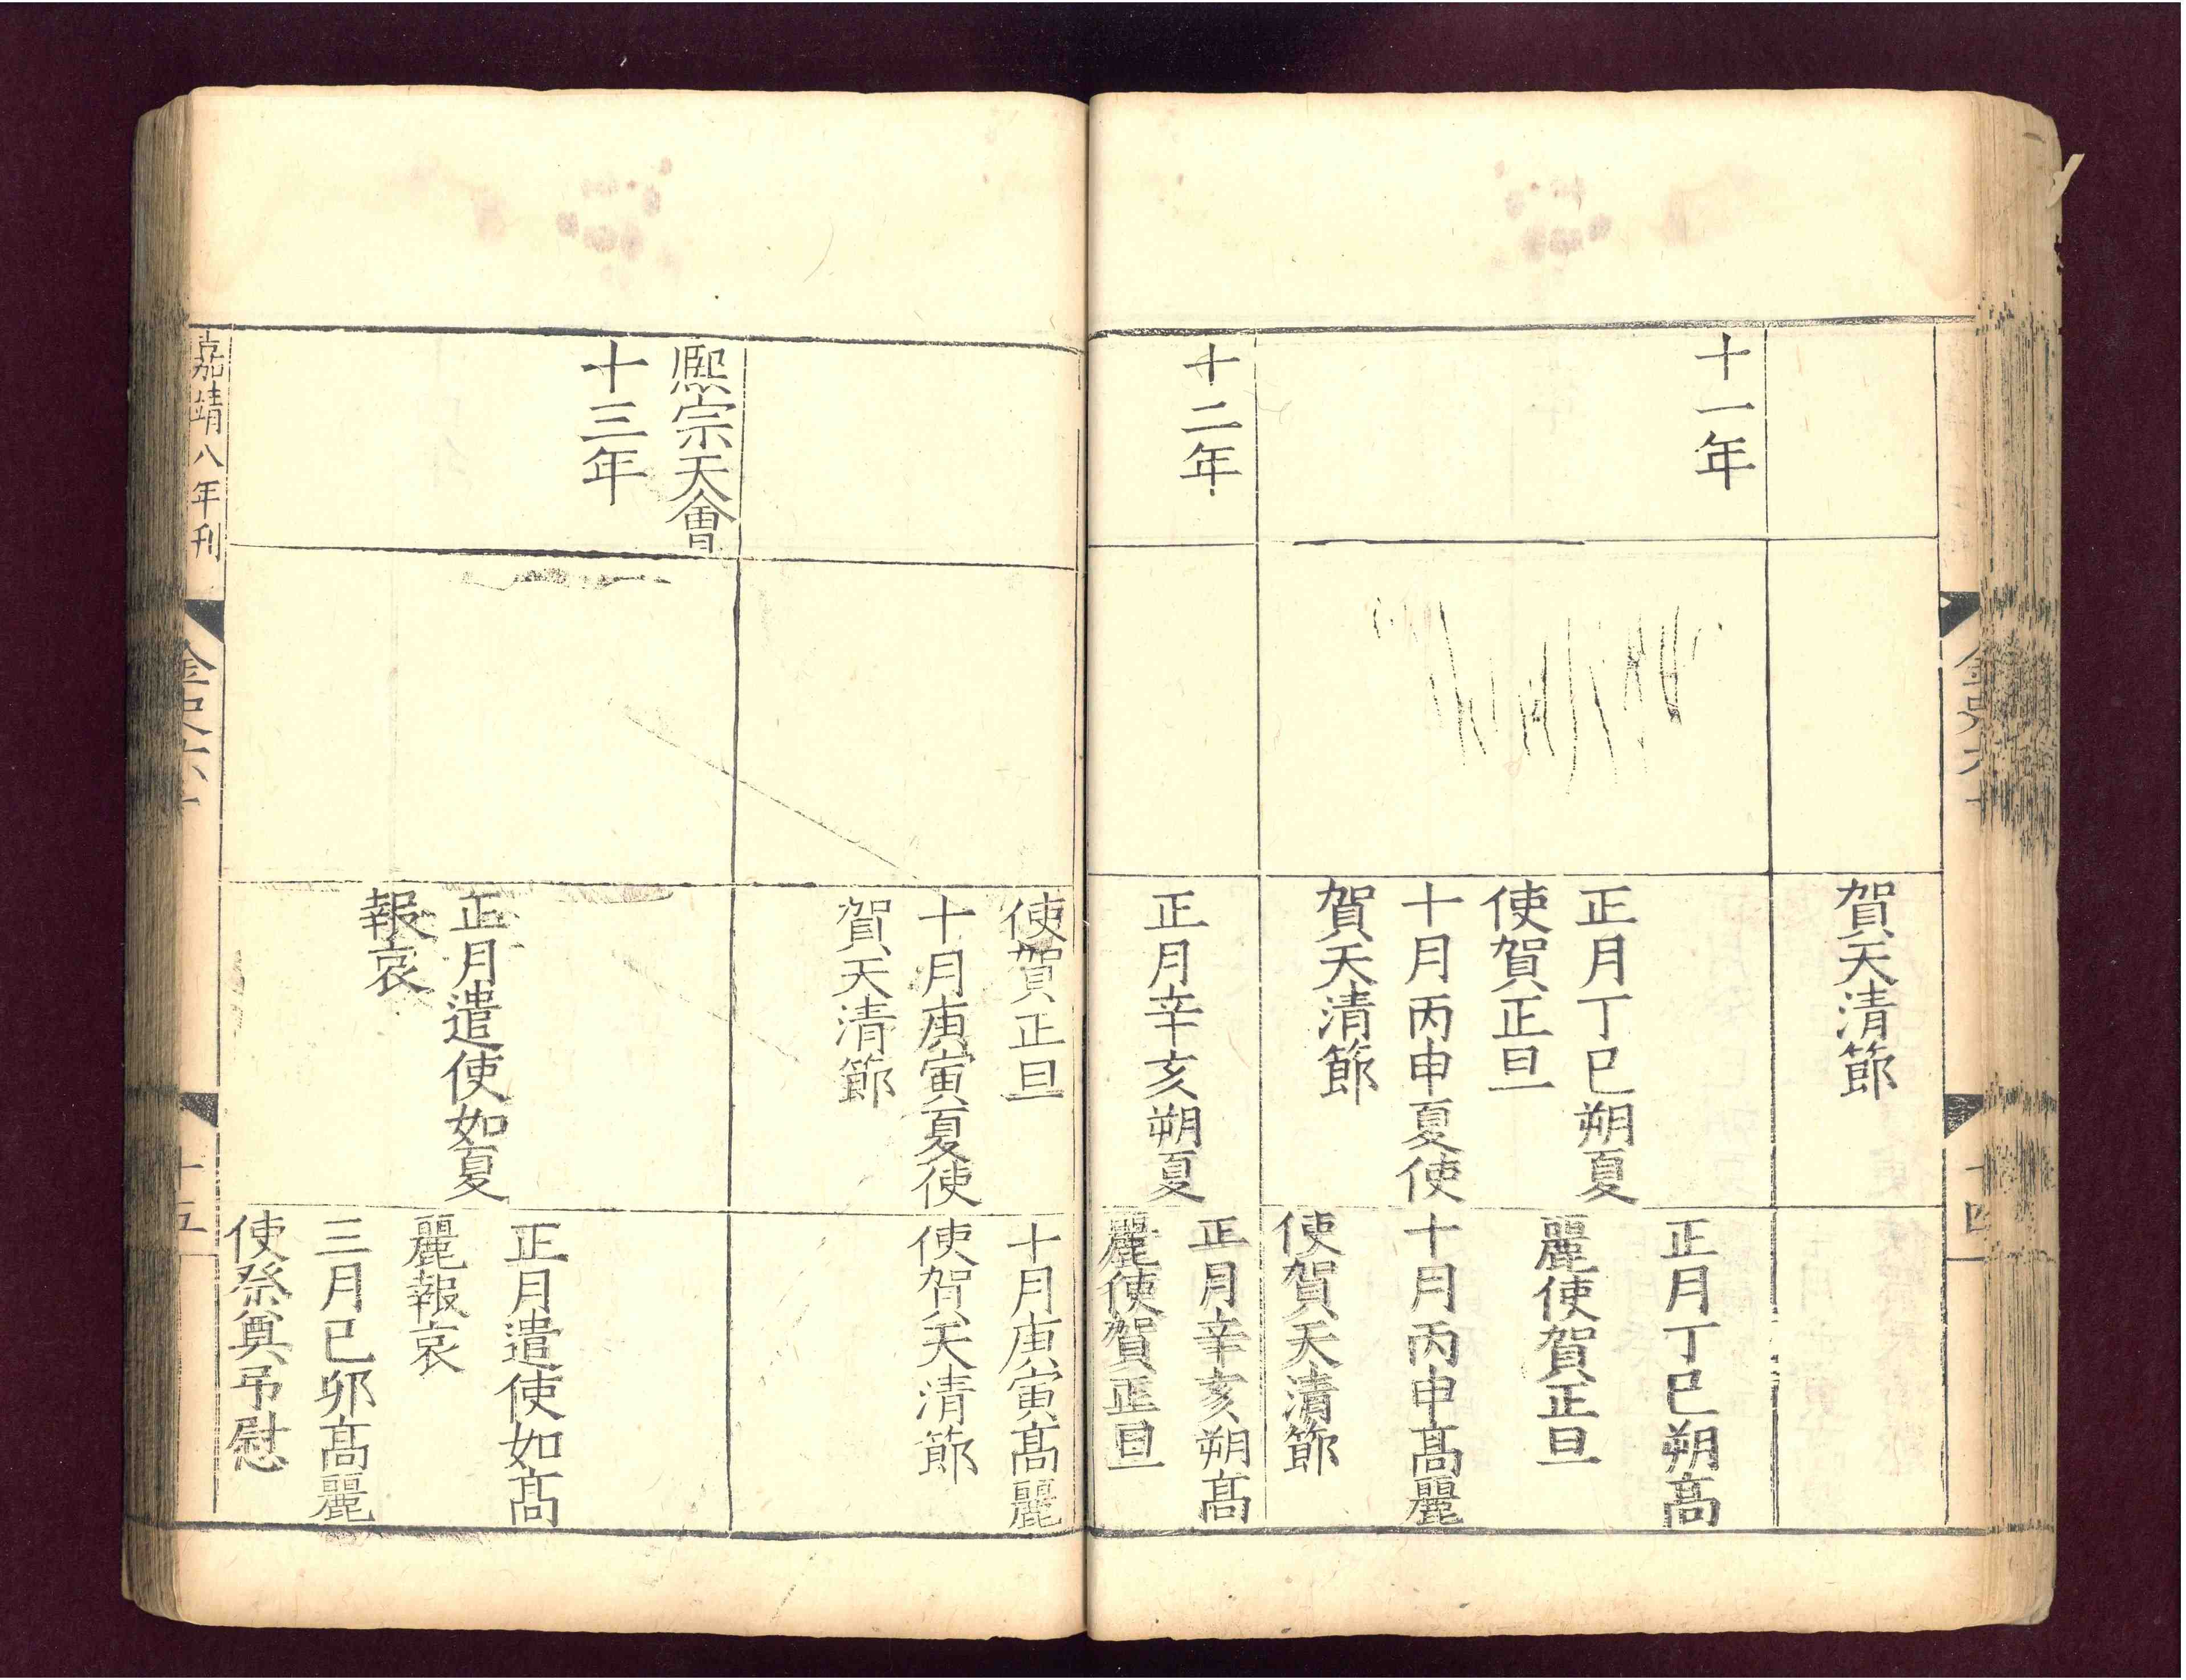 金史六十
十四
賀天清節
十一年
正月丁巳朔夏
使賀正旦
十月丙申夏使
賀天清節
正月丁巳朔高
麗使賀正旦
十月丙申高麗
使賀天清節
十二年
正月辛亥朔夏
正月辛亥朔高
麗使賀正旦
使賀正旦
十月庚寅夏使
賀天清節
十月庚寅高麗
使賀天清節
熈宗天會
十三年
正月遣使如夏
報哀
正月遣使如高
麗報哀
三月已卯高麗
使祭奠吊慰
嘉靖八年刊
金史六十
十五